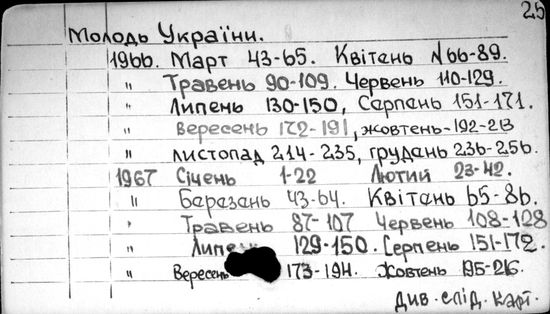 25
Молодь України.
1966. Март 43-65. Квітень №66-89.
" Травень 90-109. Червень 110-129.
" Липень 130-150, Серпень 151-171.
" Вересень 172-191, жовтень-192-213
" листопад 214-235, грудань 236-256.
1967 Січень 1-22 Лютий 23-42.
" Березань 43-64. Квітань 65-86.
" Травень 87-107 Червень 108-128
" Липень 129-150. Серпень 151-172.
" Вересень 173-194. Жовтень 195-216.
Див. слід. карт.